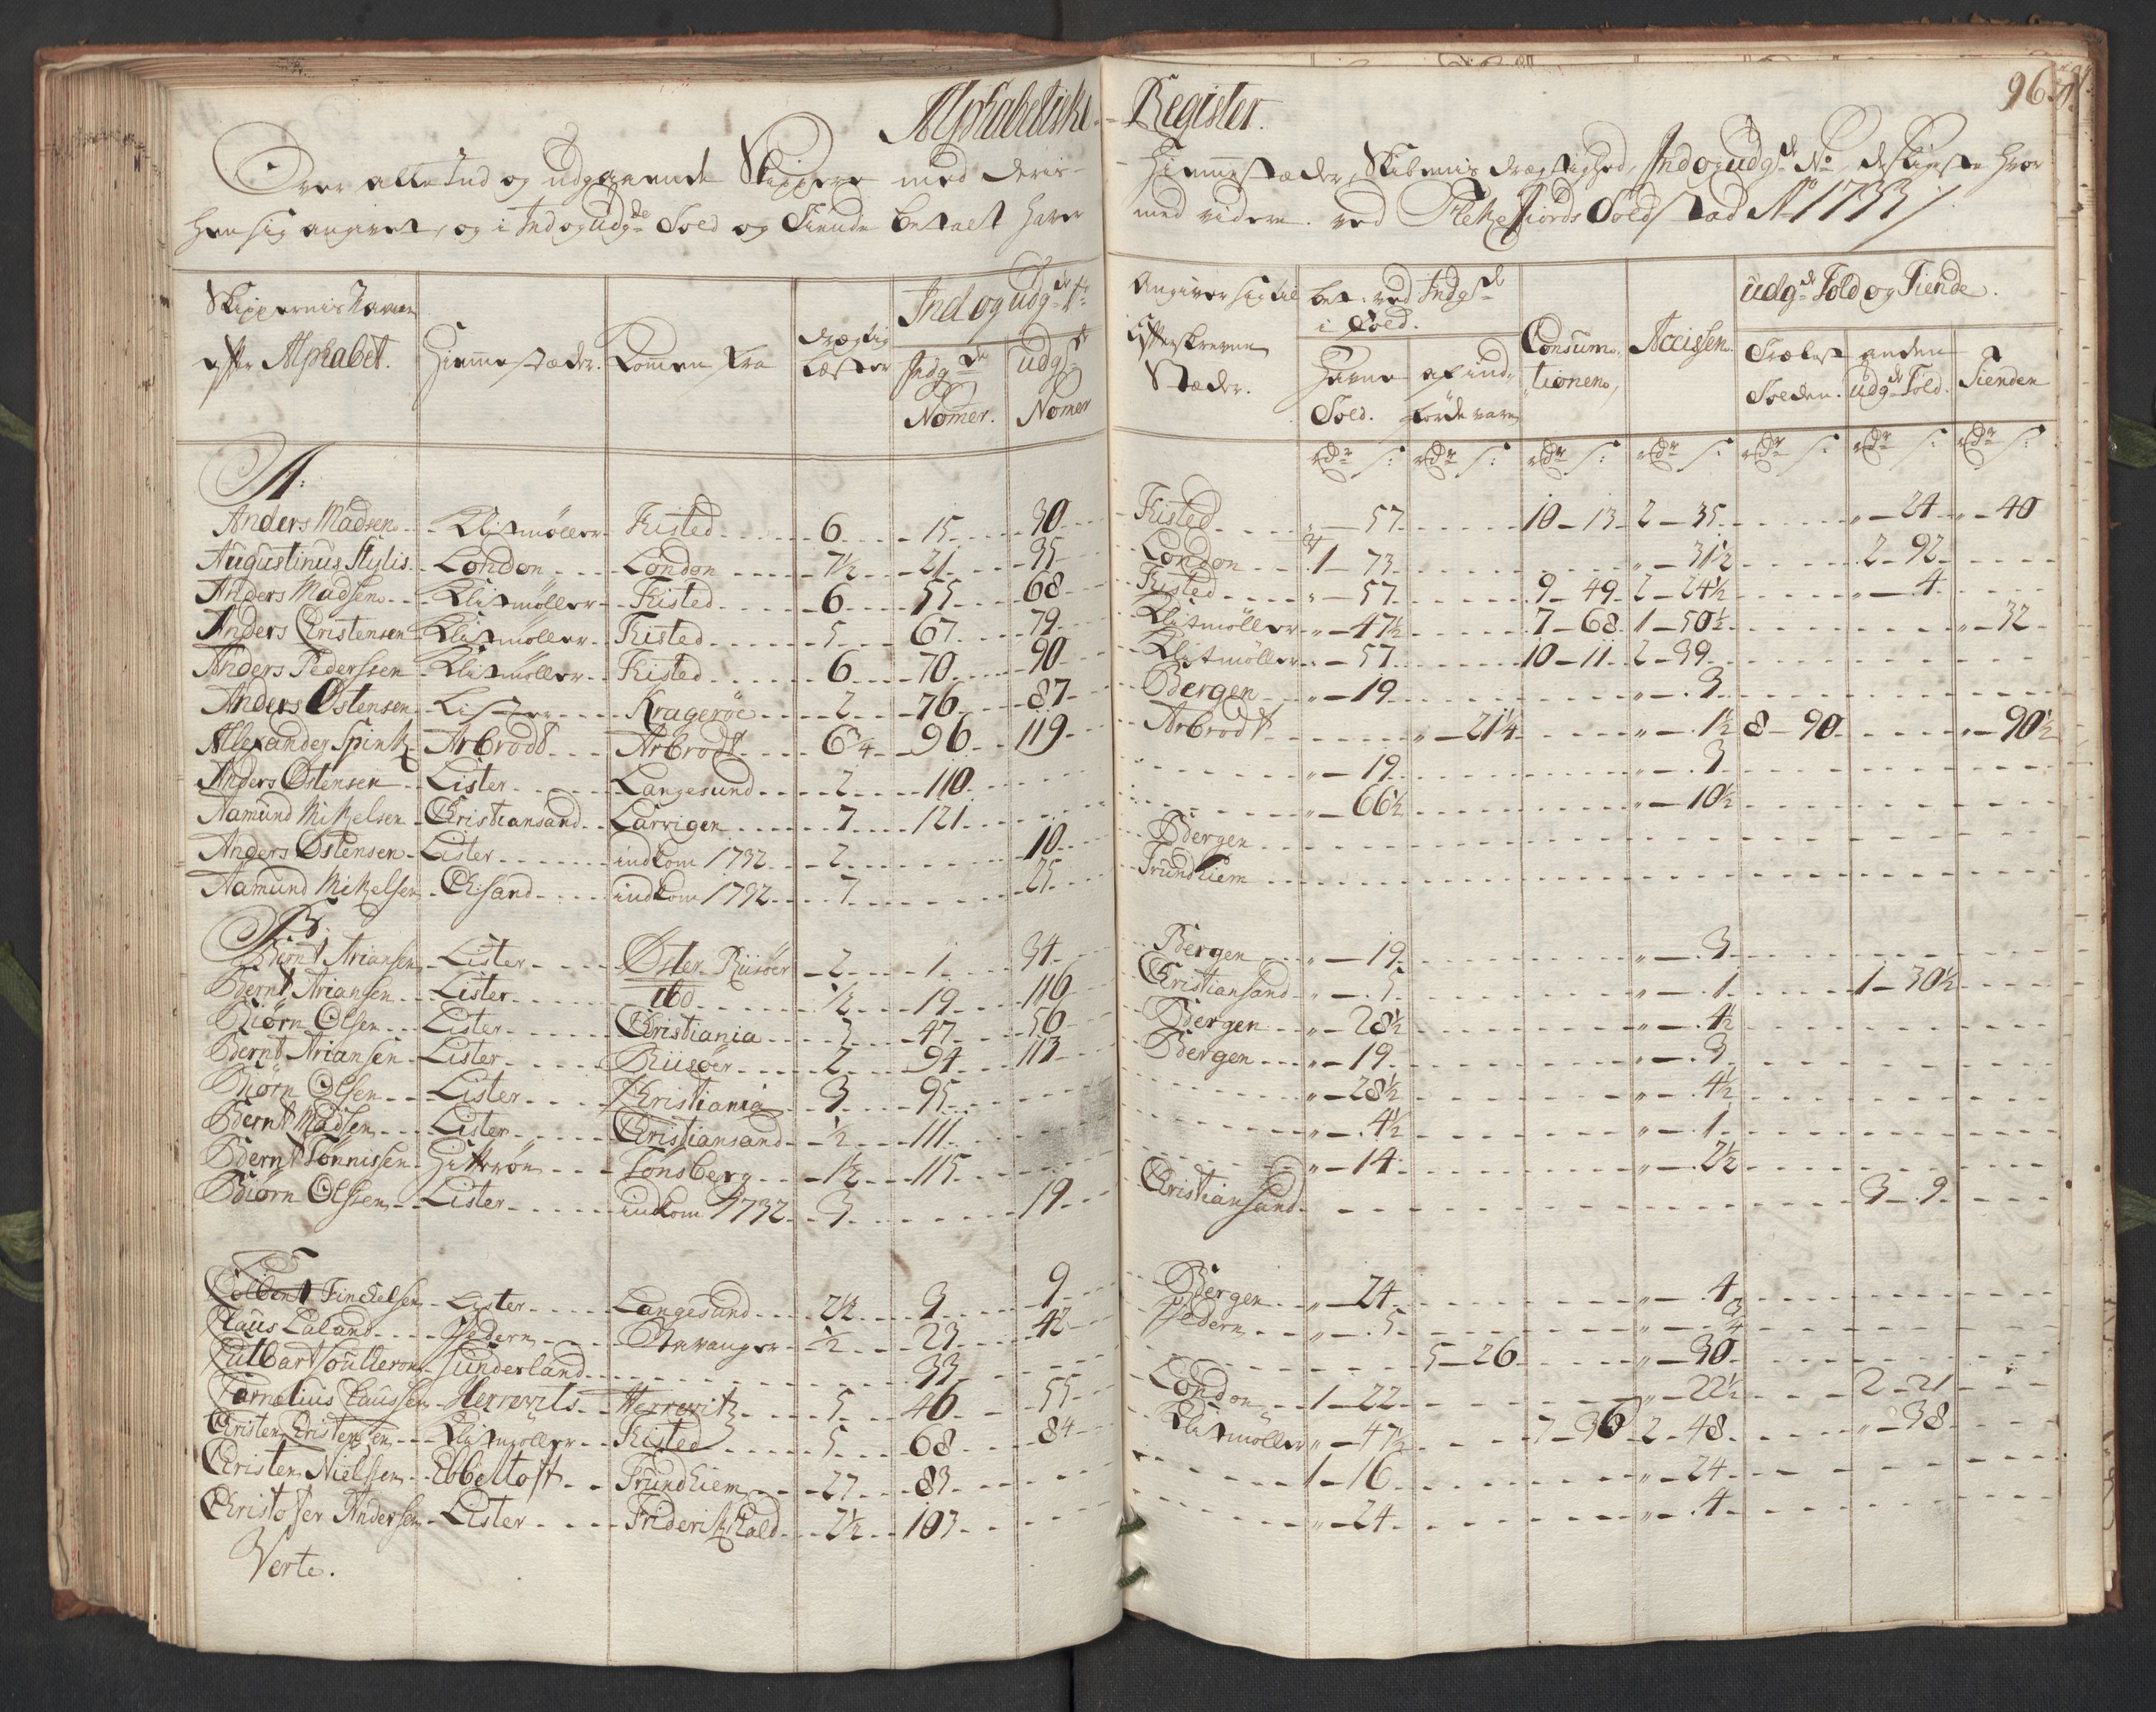 Alphabetiske Register.
96.
Over alle Ind og udgaaende Skippere med deris Hiemmestæder, Skibenis drægtighed, Ind og udgde No, de Stæder hvor
hen sig angivet, og i Ind og udgde Told og Tiende betalt haver med videre ved Flekefiords Toldstad Ao 1733
Skippernis Navne efter Alphabet. | Hiemmestæder. | Kommen fra | Drægtig Læster | Ind og udgde No: Indgde Nomer. | udgde Nomer | Angiver sig til Efterskrevne Stæder. | bet. ved Indgde i Told. Havne Told. | af indførde vare | Consumtionen | Accissen | udgde Told og Tiende. Trælast Tolden. | anden udgde Told. | Tienden
Rdr s: | Rdr s: | Rdr s: | Rdr s: | Rdr s: | Rdr s: | Rdr s:
A:
Anders Madsen Klitmøller Tisted 6 15 30 Tisted „ 57 10 13 2 35 „ 24 „ 40
Augustinus Stylis London London 7½ 21 35 London 1 73 „ 31½ 2 92
Anders Madsen Klitmøller Tisted 6 55 68 Tisted „ 57 9 49 2 24½ „ 4
Anders Christensen Klitmøller Tisted 5 67 79 Klitmøller „ 47½ 7 68 1 50½ „ 32
Anders Pederssen Klitmøller Tisted 6 70 90 Klitmøller „ 57 10 11 2 39
Anders Østensen Lister Kragerøe 2 76 87 Bergen „ 19 „ 3
Allexander Spink Arbrodt Arbrodt 6¾ 96 119 Arbrodt „ 21¼ „ 1½ 8 90 „ 90½
Anders Østensen Lister Langesund 2 110 „ 19 „ 3
Aamund Mikelsen Christiansand Larvigen 7 121 „ 66½ „ 10½
Anders Østensen Lister indkom 1732 2 10 Bergen
Aamund Mikelsen Chsand indkom 1732 7 25 Trundhiem
B:
Bernt Ariansen Lister Øster Riisöer 2 1 34 Bergen „ 19 „ 3
Bernt Ariansen Lister ibd ½ 19 116 Christiansand „ 5 „ 1 1 30½
Biørn Olsen Lister Christiania 3 47 56 Bergen „ 28½ „ 4½
Bernt Ariansen Lister Riisöer 2 94 113 Bergen „ 19 „ 3
Biørn Olsen Lister Christiania 3 95 „ 28½ „ 4½
Bernt Madsen Lister Christiansand ½ 111 „ 4½ „ 1
Bernt Tønnissen Hitterøe Tonsberg 1½ 115 „ 14 „ 2½
Biørn Olssen Lister indkom 1732 3 19 Christiansand 3 9
C
Colbent Finckelsen Lister Langesund 2½ 9 9 Bergen „ 24 „ 4
Claus Laland Jedern Stavanger ½ 23 42 Jedern „ 5 „ ¾
Cutbart Coulteron Sunderland 33 5 26 „ 30
Cornelius Claussen Herrevits Herrewitz 5 46 55 London 1 22 „ 22½ 2 21
Christen Christensen Klitmøller Tisted 5 68 84 Klitmøller „ 47½ 7 36 2 48 „ 38
Christen Nielssen Ebbeltoft Trundhiem 27 83 1 16 „ 24
Christofer Andersen Lister Friderikshald 2½ 103 „ 24 „ 4
Verte.